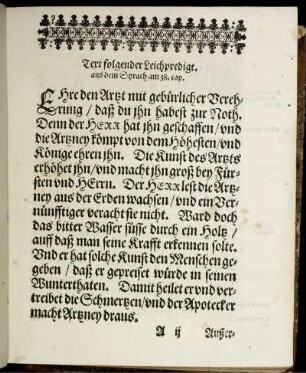 Text folgender Leichpredigt.
aus dem Syrach am 38. cap.
EHre den Artzt mit gebürlicher Vereh-
rung / daß du jhn habest zur Noth.
Denn der HERR hat jhn geschaffen / vnd
die Artzney kömpt von dem Höhesten / vnd
Könige ehren jhn. Die Kunst des Artzts
erhöhet jhn / vnd macht jhn groß bey Für-
sten vnd HErrn. Der HERR lest die Artz-
ney aus der Erden wachsen / vnd ein Ver-
nünfftiger veracht sie nicht. Ward doch
das bitter Wasser süsse durch ein Holtz /
auff daß man seine Krafft erkennen solte.
Vnd er hat solche Kunst den Menschen ge-
geben / daß er gepreiset würde in seinen
Wunterthaten. Damit heilet er vnd ver-
treibet die Schmertzen / vnd der Apotecker
macht Artzney draus.
A ij Außer-